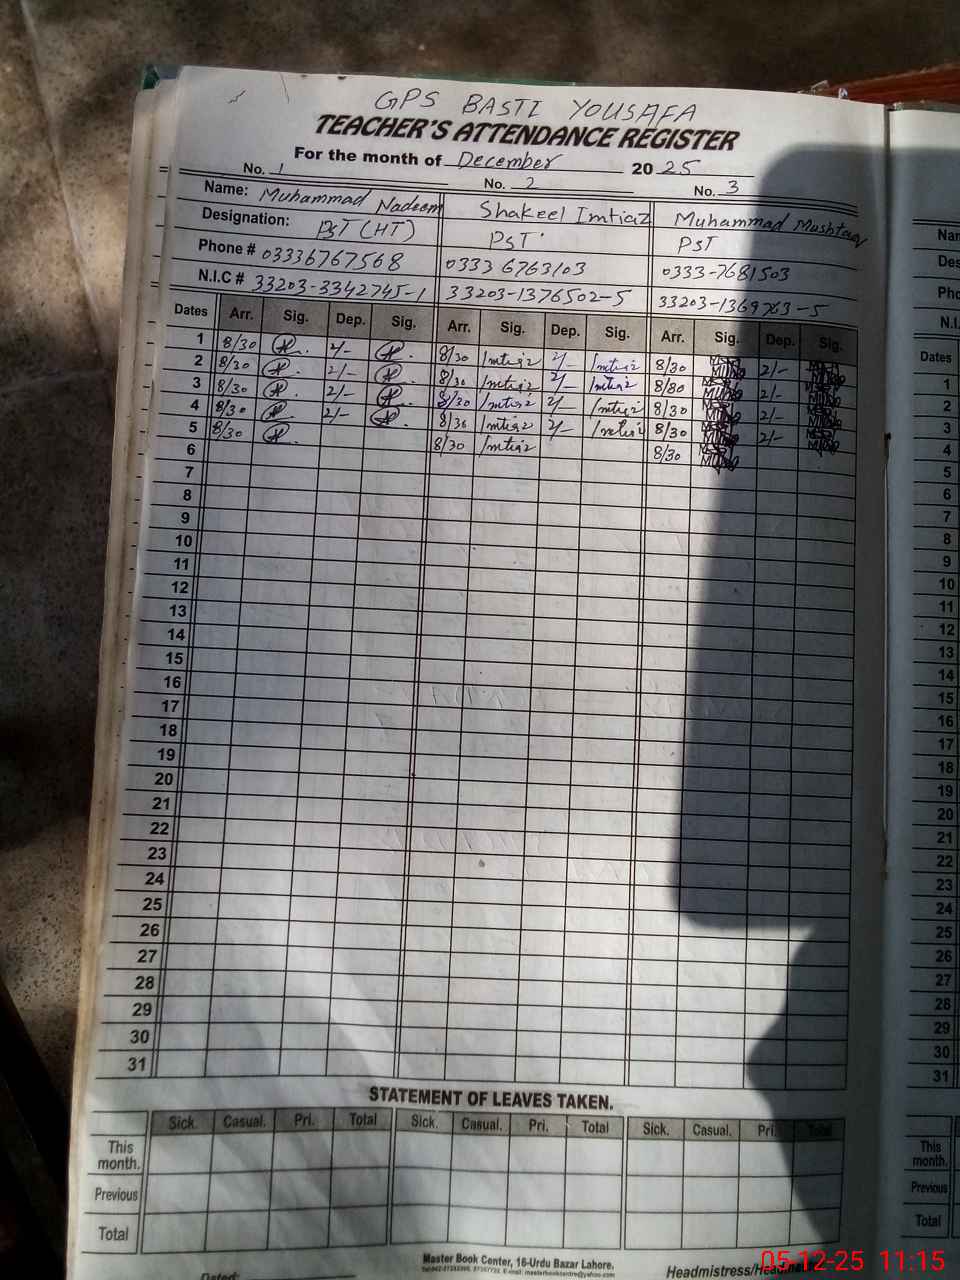 GPS BASTI YOUSAFA
TEACHER'S ATTENDANCE REGISTER
For the month of December 2025
No. 1 No. 2 No. 3
Name: Muhammad Nadeem Shakeel Imtiaz Muhammad Mushtaq
Designation: PST (HT) PST PST
Phone # 03336767568 0333 6763103 0333-7681503
N.I.C # 33203-3342745-1 33203-1376502-5 33203-1369763-5
Dates Arr. Sig. Dep. Sig. Arr. Sig. Dep. Sig. Arr. Sig. Dep. Sig.
1 8/30 2/- 8/30 Imtiaz 2/- Imtiaz 8/30 2/-
2 8/30 2/- 8/30 Imtiaz 2/- Imtiaz 8/30 2/-
3 8/30 2/- 8/30 Imtiaz 2/- Imtiaz 8/30 2/-
4 8/30 2/- 8/30 Imtiaz 2/- Imtiaz 8/30 2/-
5 8/30 8/30 Imtiaz 8/30
6
7
8
9
10
11
12
13
14
15
16
17
18
19
20
21
22
23
24
25
26
27
28
29
30
31
STATEMENT OF LEAVES TAKEN.
Sick. Casual. Pri. Total Sick. Casual. Pri. Total Sick. Casual. Pri. Total
This month.
Previous
Total
Master Book Center, 16-Urdu Bazar Lahore.
Dated:
Headmistress/Head
Nam
Des
Pho
N.I.
Dates
1
2
3
4
5
6
7
8
9
10
11
12
13
14
15
16
17
18
19
20
21
22
23
24
25
26
27
28
29
30
31
This month.
Previous
Total
05-12-25 11:15